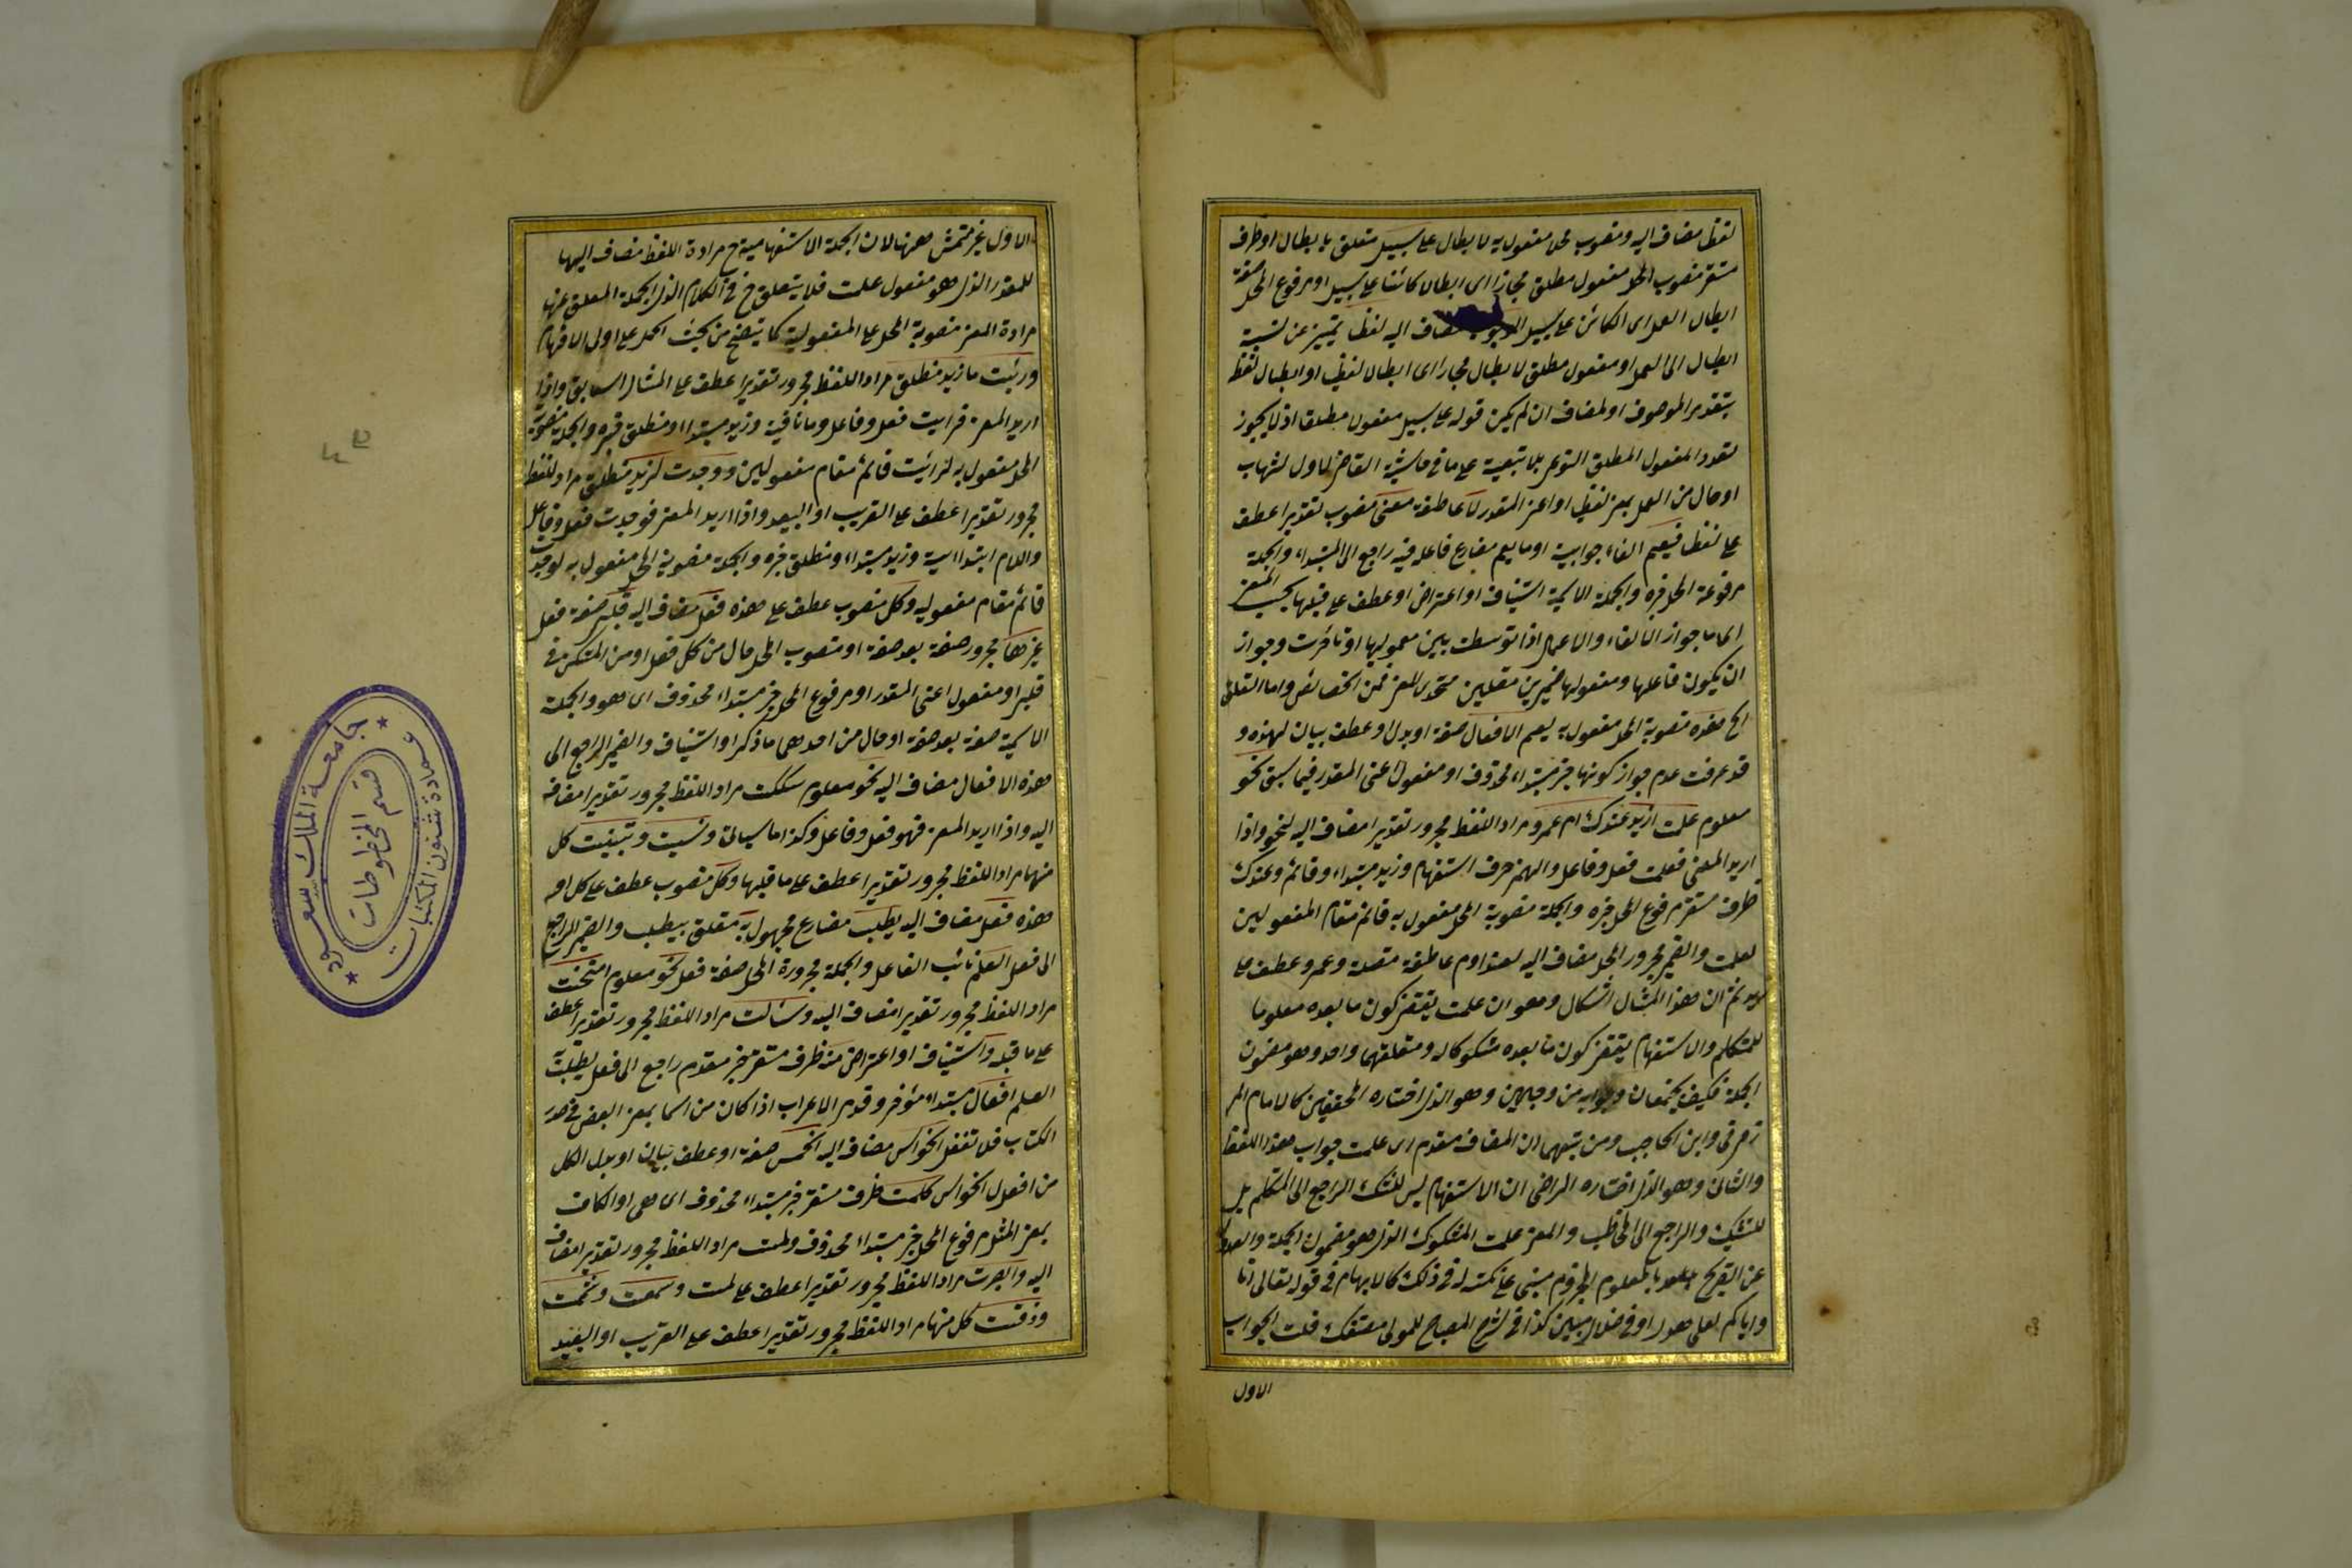 لفظا مضاف اليه ومنصوب محلا مفعول به لابطال على سبيل متعلق بابطال او ظرف
مستقر منصوب المحل مفعول مطلق مجازا اى ابطالا كائنا على سبيل او مرفوع المحل صفة
ابطال العمل اى الكائن على سبيل الوجوب مضاف اليه لفظا تمييز عن نسبة
ابطال الى العمل او مفعول مطلق لابطال مجازا اى ابطال لفظ او ابطالا لفظا
بتقدير الموصوف او المضاف ان لم يكن قوله على سبيل مفعولا مطلقا اذ لا يجوز
تعدد المفعول المطلق النوعى بلا تبعية على ما فى حاشية القاضى الاول لشهاب
او حال من العمل بمعنى لفظيا او اعنى المقدر لا عاطفة معنى منصوب تقديرا عطف
على لفظا فيعم الفاء جوابية او ما يعم مضارع فاعله فيه راجع الى المبتداء والجملة
مرفوعة المحل خبره والجملة الاسمية استيناف او اعتراض او عطف على قبلها بحسب المعنى
اما جواز الالغاء والاعمال اذا توسطت بين معموليها او تأخرت وجواز
ان يكون فاعلها ومفعولها ضميرين متصلين متحدى المعنى فمن الخصائص واما التعليق
الخ هذه منصوبة المحل مفعول به ليعم الافعال صفة او بدل او عطف بيان لهذه و
قد عرفت عدم جواز كونها خبر مبتداء محذوف او مفعول اعنى المقدر فيما سبق نحو
معلوم علمت ازيد عندك ام عمرو مراد اللفظ مجرور تقديرا مضاف اليه لنحو واذا
اريد المعنى فعلمت فعل وفاعل والهمزة حرف استفهام وزيد مبتداء وقائم وعندك
ظرف مستقر مرفوع المحل خبره والجملة منصوبة المحل مفعول به قائم مقام المفعولين
لعلمت والضمير مجرور المحل مضاف اليه لعند وام عاطفة متصلة وعمرو عطف على
زيد ثم ان هذا المثال اشكال وهو ان علمت يقتضى كون ما بعده معلوما
للمتكلم والاستفهام يقتضى كون ما بعده مشكوكا له ومتعلقهما واحد وهو مضمون
الجملة فكيف يجتمعان وجوابه من وجهين وهو الذى اختاره المحققين كالامام المر
زوقى وابن الحاجب ومن تبعهما ان المضاف مقدم اى علمت جواب هذا اللفظ
والثانى وهو الذى اختاره الرضى ان الاستفهام ليس للشك الراجع الى المتكلم بل
للتشكيك والراجع الى المخاطب والمعنى علمت المشكوك الذى هو مضمون الجملة والعدول
عن التصريح بالمعلوم المجزوم مبنى على نكتة له فى ذلك كالابهام فى قوله تعالى انا
واياكم لعلى هدى او فى ضلال مبين كذا فى شرح المصباح للمولى مصنفك قلت الجواب
الاول
الاول غير متمش ههنا لان الجملة الاستفهامية ح مرادة اللفظ مضاف اليها
للمقدر الذى هو مفعول علمت فلا يتعلق ح فى الكلام الذى الجملة المعلق عنها
مرادة المعنى منصوبة المحل على المفعولية كما يتضح من بحث الحمد على اولى الافهام
ورئيت ما زيد منطلق مراد اللفظ مجرور تقديرا عطف على المثال السابق واذا
اريد المعنى فرايت فعل وفاعل وما نافية وزيد مبتداء ومنطلق خبره والجملة منصوبة
المحل مفعول به لرائيت قائم مقام مفعولين ووجدت لزيد منطلق مراد اللفظ
مجرور تقديرا عطف على القريب او البعيد واذا اريد المعنى فوجدت فعل وفاعل
واللام ابتدائية وزيد مبتداء ومنطلق خبره والجملة منصوبة المحل مفعول به لوجدت
قائم مقام مفعوليه وكل منصوب عطف على هذه فعل مضاف اليه قلبى صفة فعل
غيرها مجرور صفة بعد صفة او منصوب المحل حال من كل فعل او من المستكن فى
قلبى او مفعول اعنى المقدر او مرفوع المحل خبر مبتداء محذوف اى هو والجملة
الاسمية صفة بعد صفة او حال من احدهما ما ذكر او استيناف والضمير الراجع الى
هذه الافعال مضاف اليه نحو معلوم شككت مراد اللفظ مجرور تقديرا مضافه
اليه واذا اريد المعنى فهو فعل وفاعل وكذا ما سيأتى ونسيت وتبينت كل
منهما مراد اللفظ مجرور تقديرا عطف على ما قبلها وكل منصوب عطف على كل او
هذه فعل مضاف اليه يطلب مضارع مجهول به متعلق بيطلب والضمير الراجع
الى فعل العلم نائب الفاعل والجملة مجرورة المحل صفة فعل نحو معلوم امتحنت
مراد اللفظ مجرور تقديرا مضاف اليه وسالت مراد اللفظ مجرور تقديرا عطف
على ما قبله واستيناف او اعتراض منه ظرف مستقر خبر مقدم راجع الى فعل يطلب به
العلم افعال مبتداء مؤخر وقدم الاعراب اذا كان من اسما بمعنى البعض فى صدر
الكتاب فلا تغفل الحواس مضاف اليه الخمس صفة او عطف بيان او بدل الكل
من افعل الحواس كلمست ظرف مستقر خبر مبتداء محذوف اى هى او الكاف
بمعنى المثل مرفوع المحل خبر مبتداء محذوف ولمست مراد اللفظ مجرور تقديرا مضاف
اليه وابصرت مراد اللفظ مجرور تقديرا عطف على لمست وسمعت وشممت
وذقت كل منها مراد اللفظ مجرور تقديرا عطف على القريب او البعيد
جامعة الملك سعود
عمادة شئون المكتبات
قسم المخطوطات